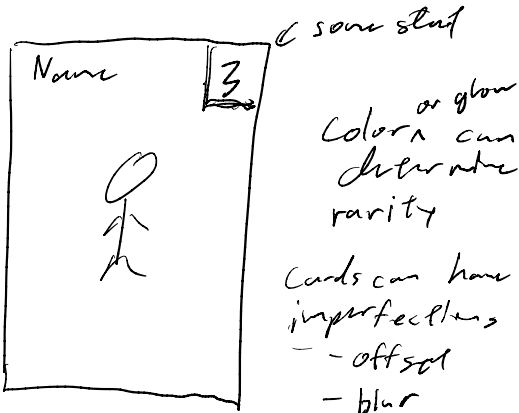 some stat
Name
3
Color or glow can
determine
rarity
Cards can have
imperfections
- offset
- blur